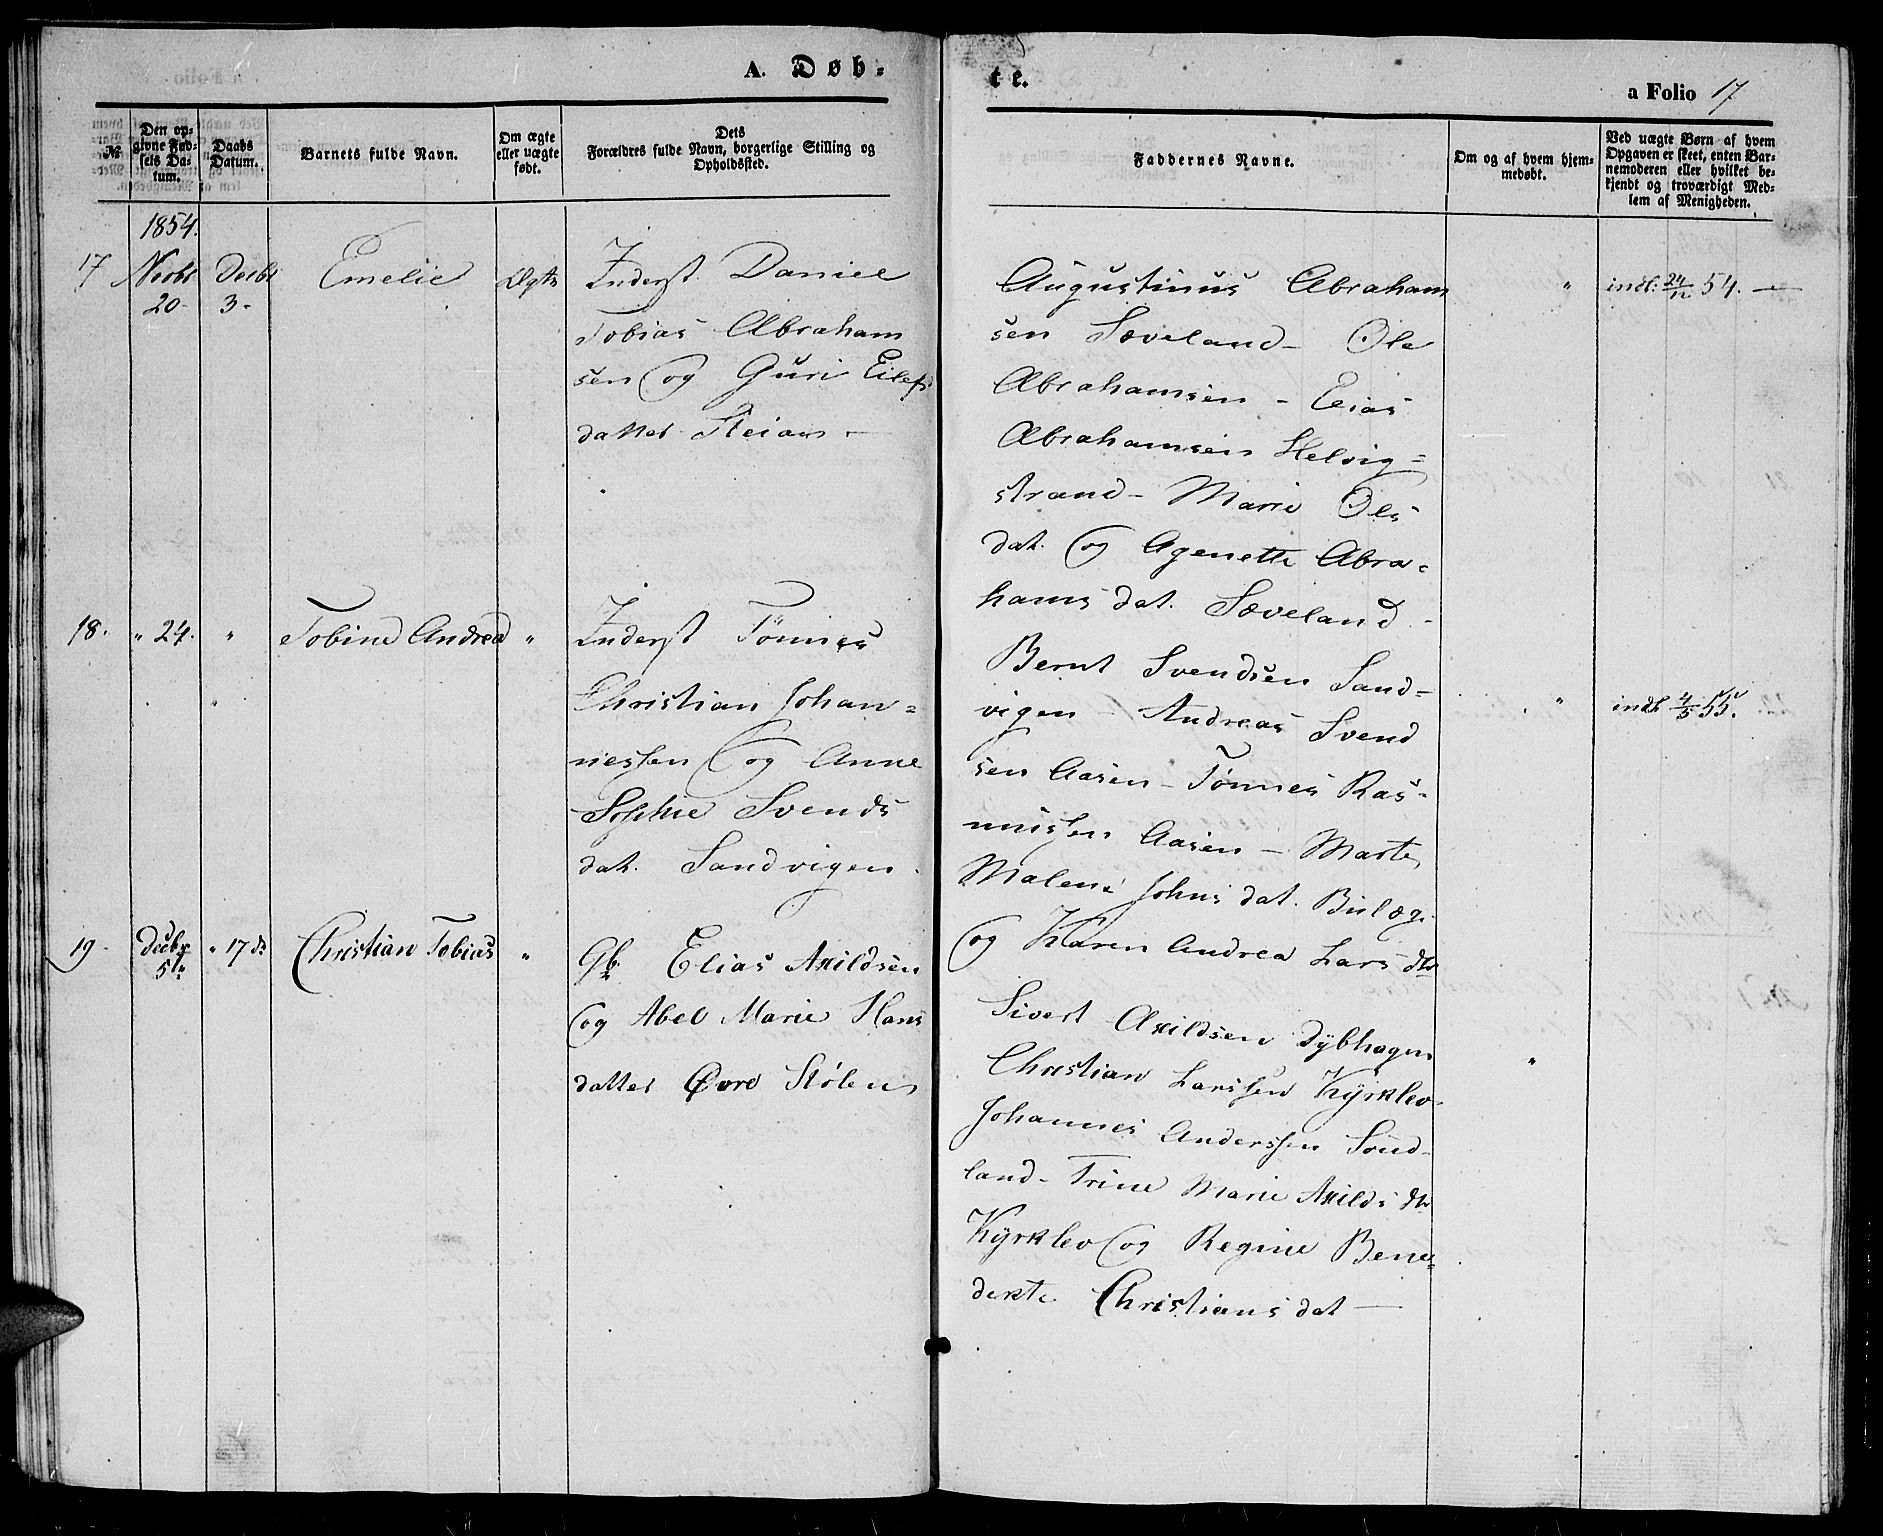 A. Døb=
te.
a Folio 17
№
Den op-
givne Fød-
sels Da-
tum.
Daabs
Datum.
Barnets fulde Navn.
Om ægte
eller uægte
født.
Dets
Forældres fulde Navn, borgerlige Stilling og
Opholdssted.
Faddernes Navne.
Om og af hvem hjem-
medøbt.
Ved uægte Børn af hvem
Opgaven er skeet, enten Bar-
nemoderen eller hvilket be-
kjendt og troværdigt Med-
lem af Menigheden.
1854.
17 Novbr Decbr Emelie Ægte
20- 3-
Inderst. Daniel
Tobias Abraham
sen og Guri Eilefs
datter
Augustinus Abraham
sen Sæveland- Ole
Abrahamsen - Elias
Abrahamsen Helvig=
strand- Marie Ols
dat. og Agenette Abra=
hams dat. Sæveland -
" indf: 24/12 54. —
18. " 24. " Tobine Andrea "
Inderst Tönnes
Christian Johan=
nessen og Anne
Sophie Svends
dat. Sandvigen.
Bernt Svendsen Sand-
vigen - Andreas Svend
sen Aasen - Tönnes Ras-
mussen Aasen - Marte
Malene Johns dat.
og Karen Andrea Lars dtr
" indf 4/5 55.
19- Decbr " 17 ds Christian Tobias "
5te
Gb. Elias Axildsen
og Abel Marie Hans
datter Øvre Stölen
Sivert Axildsen Dybhagen
Christian Larssen Kyrklev-
Johannes Anderssen Sönd-
land- Trine Marie Axilds dtr
Kyrklev og Regine Bene=
dekte Christians dat —
"